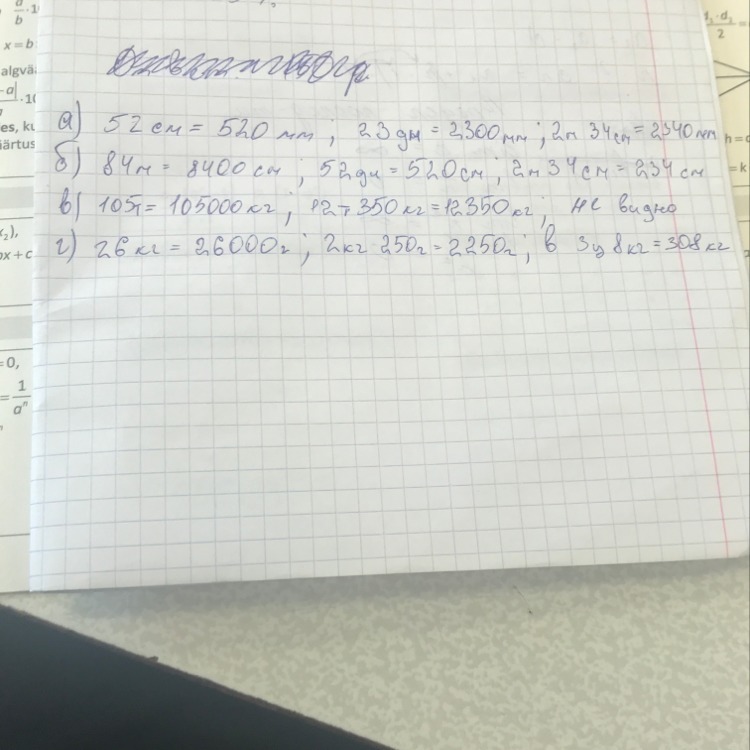 a/b · 1
x = b
algvä
-a| · 10
es, ku
ärtus
d₁·d₂/2 =
а) 52 см = 520 мм ; 23 дм = 2300 мм ; 2м 34 см = 2340 мм
б) 84 м = 8400 см ; 52 дм = 520 см ; 2м 34 см = 234 см
в) 105т = 105000 кг ; 12т 350 кг = 12350 кг ; не видно
г) 26 кг = 26000г ; 2кг 250г = 2250г ; в 3ц 8кг = 308 кг
x₂),
ox + c
= 0,
= 1/aⁿ